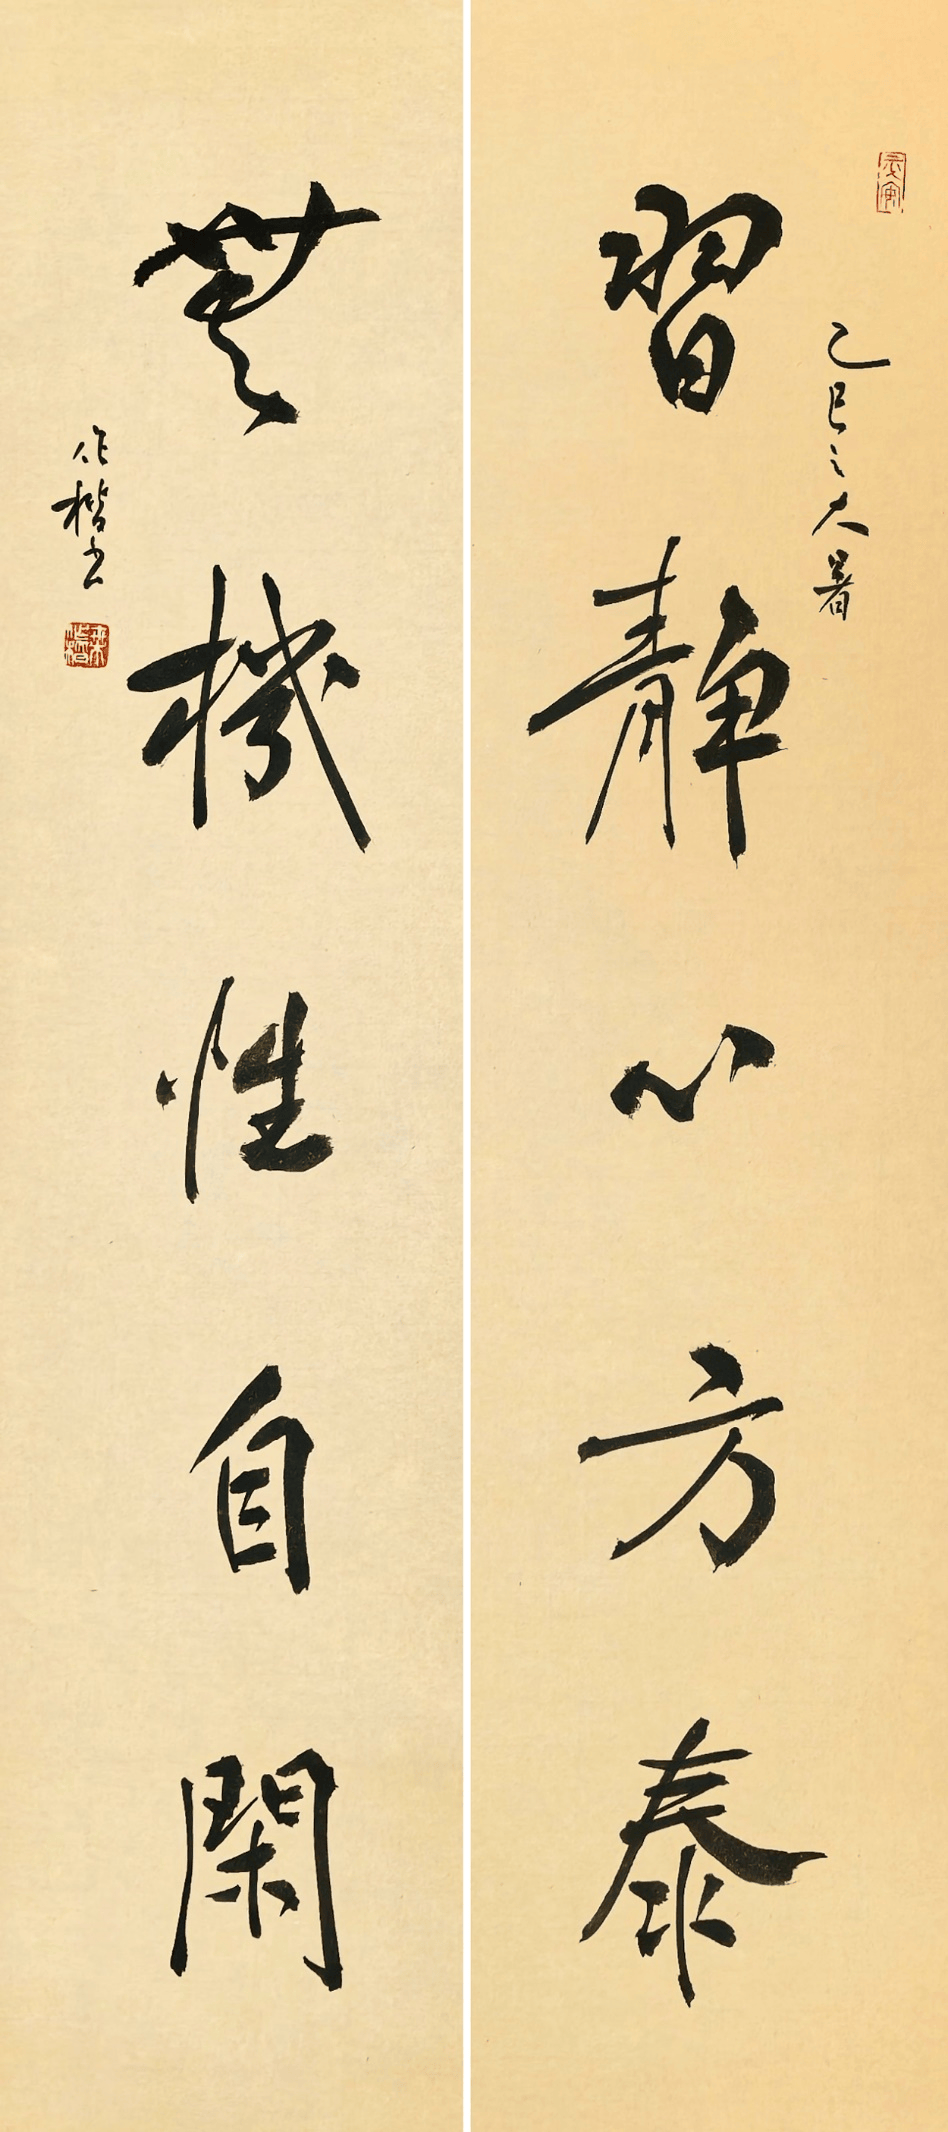 習靜心方泰
乙巳之大暑
無機性自閑
作楷書